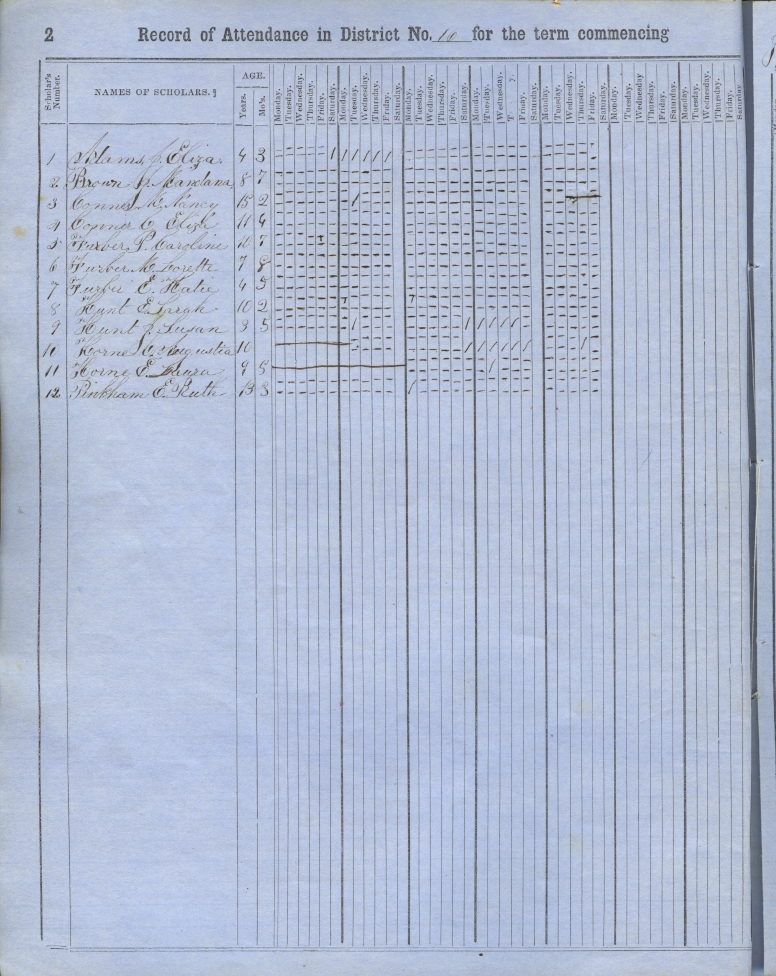 2 Record of Attendance in District No. 10 for the term commencing
Scholar's Number. NAMES OF SCHOLARS.¶ AGE. Years. Mo's. Monday. Tuesday. Wednesday. Thursday. Friday. Saturday. Monday. Tuesday. Wednesday. Thursday. Friday. Saturday. Monday. Tuesday. Wednesday. Thursday. Friday. Saturday. Monday. Tuesday. Wednesday. T y. Friday. Saturday. Monday. Tuesday. Wednesday. Thursday. Friday. Saturday. Monday. Tuesday. Wednesday Thursday. Friday. Saturday. Monday. Tuesday. Wednesday. Thursday. Friday. Saturday
1 Adams J. Eliza 4 3
2 Brown Mandana 8 7
3 Conner Nancy 15 2
4 Conner 11 4
5 Furber P. Caroline 10 7
6 Furber M. Lorette 7 8
7 Furber E. Katie 4 5
8 Hunt E. Sarah 10 2
9 Hunt J. Susan 8 5
10 Horne Augustia 10
11 Horne E. Laura 9 5
12 Pinkham E. Ruth 13 3